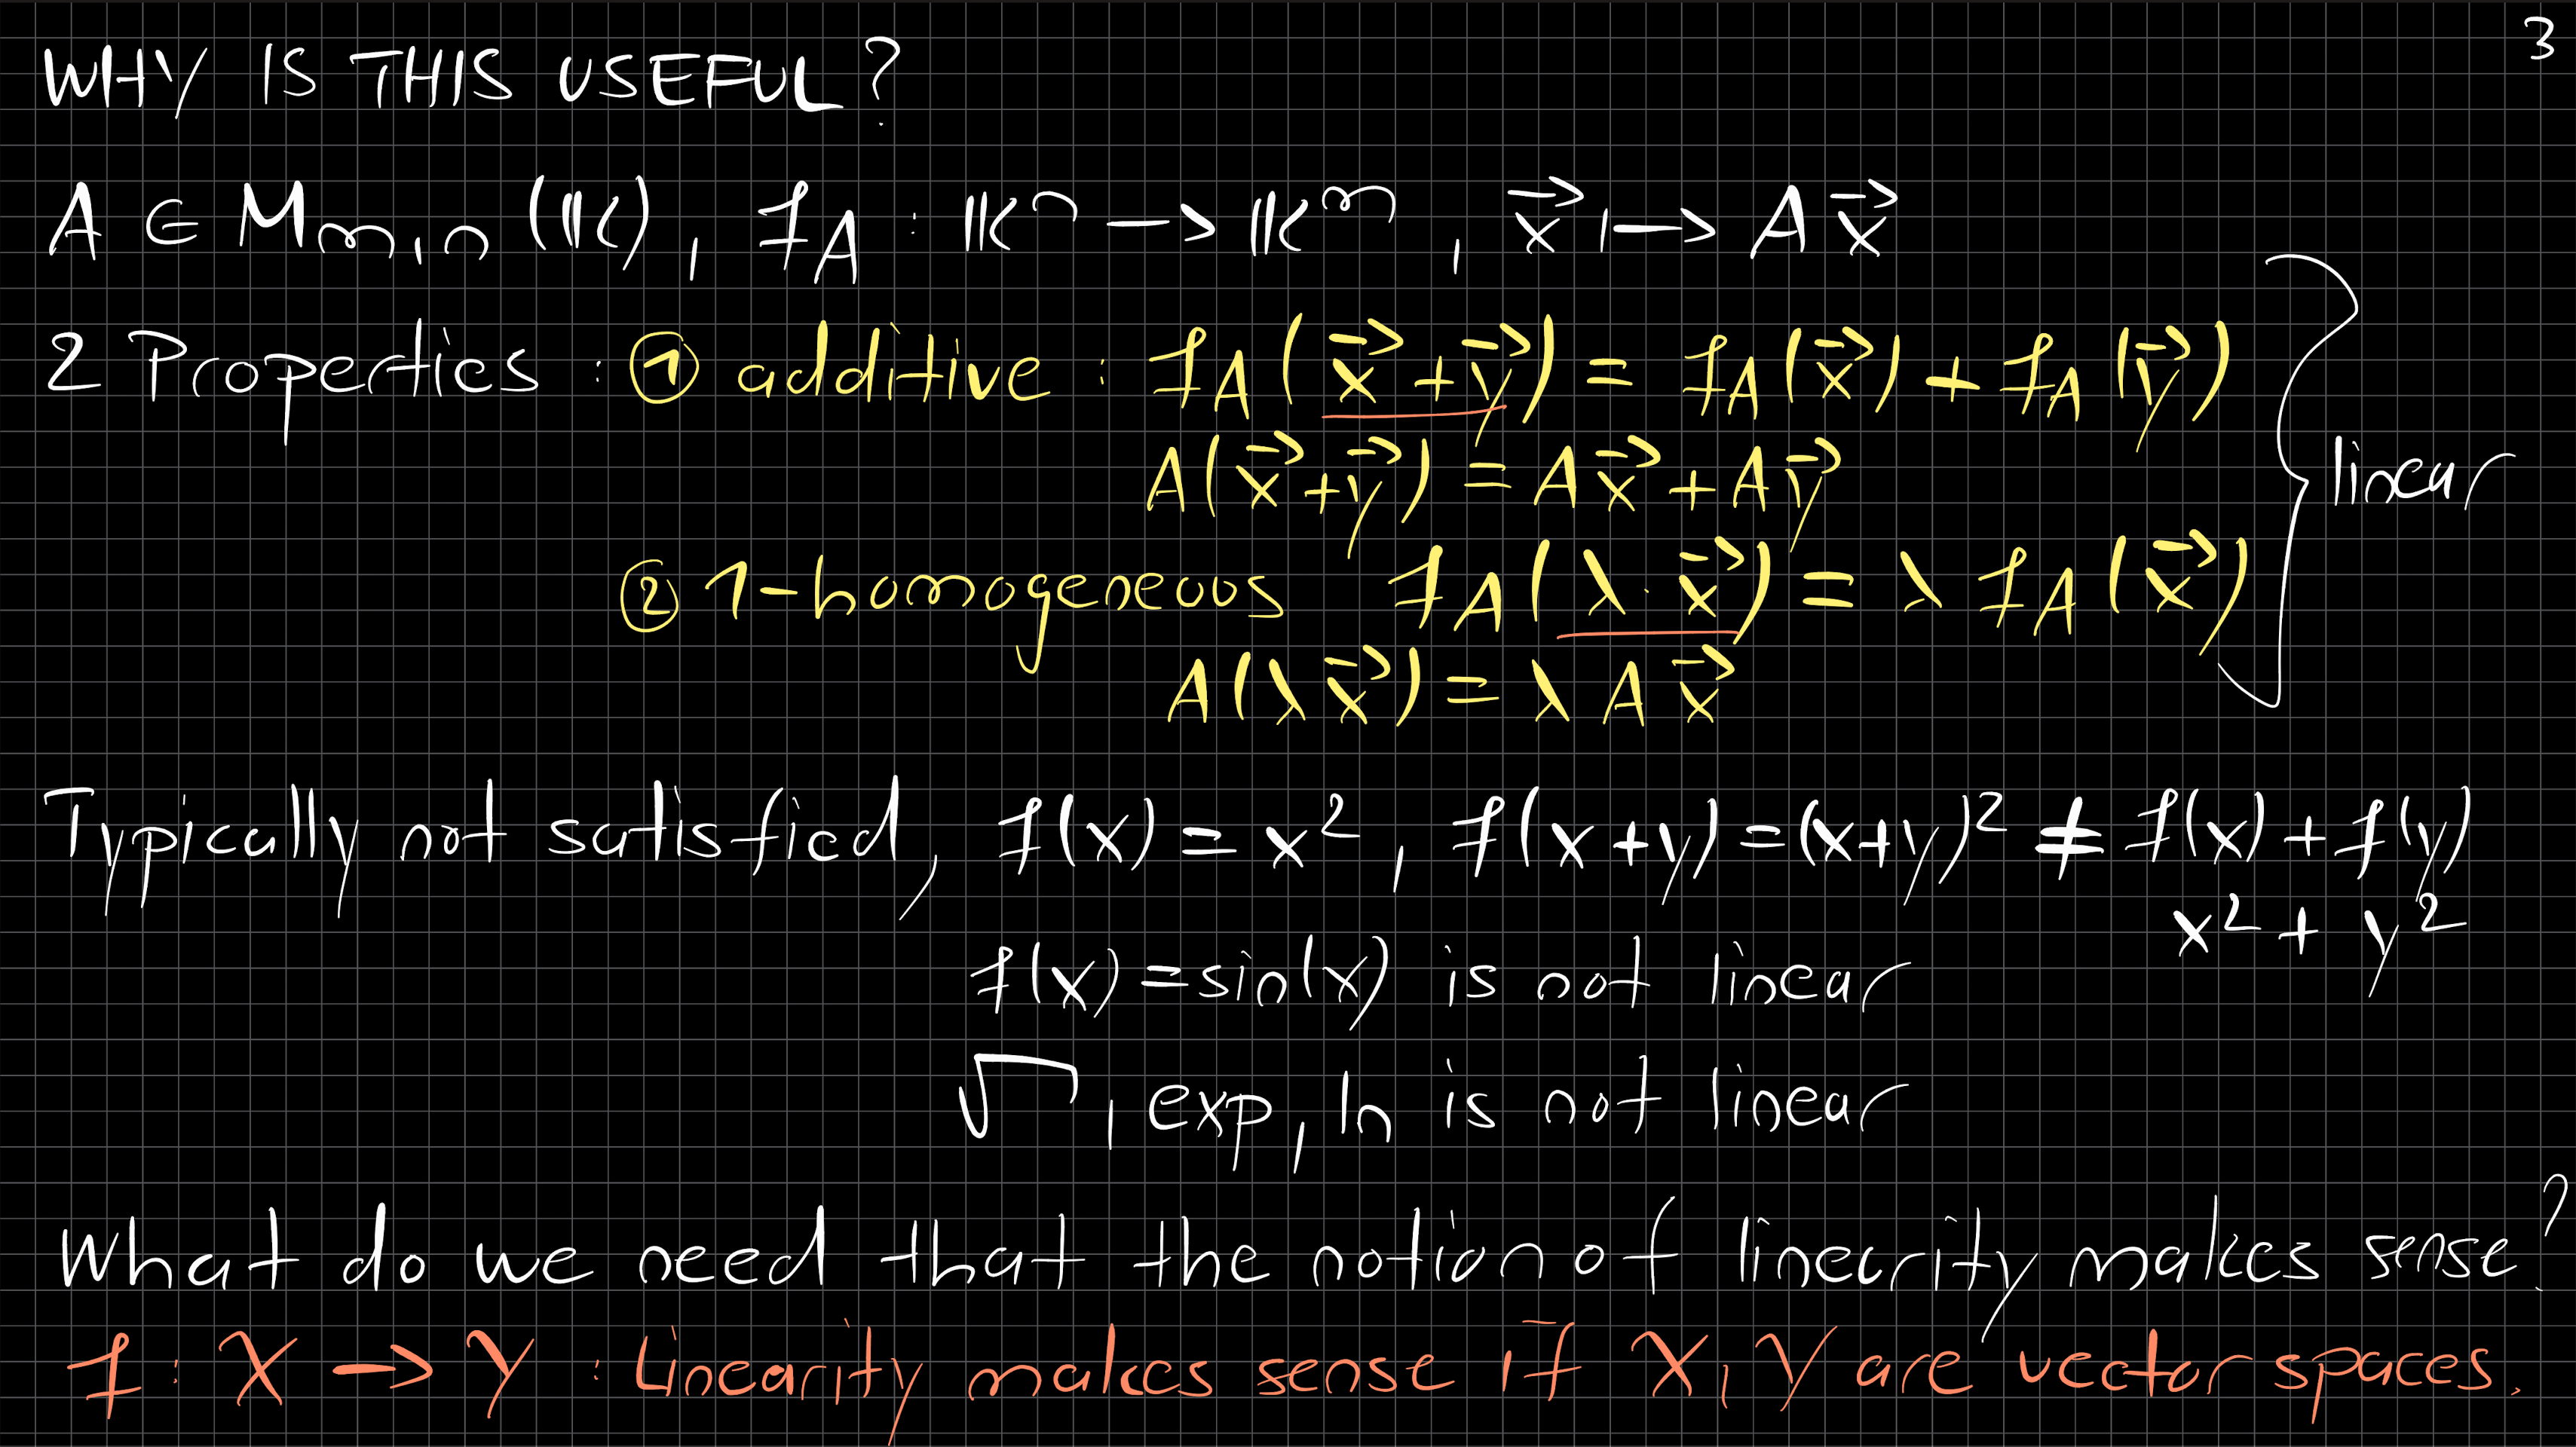 3
WHY IS THIS USEFUL?
A ∈ M_{m,n}(𝕂), f_A : 𝕂^n → 𝕂^m, x⃗ ↦ A x⃗
2 Properties : ① additive : f_A(x⃗ + y⃗) = f_A(x⃗) + f_A(y⃗)
A(x⃗ + y⃗) = A x⃗ + A y⃗
linear
② 1-homogeneous f_A(λ · x⃗) = λ f_A(x⃗)
A(λ x⃗) = λ A x⃗
Typically not satisfied, f(x) = x², f(x+y) = (x+y)² ≠ f(x) + f(y)
x² + y²
f(x) = sin(x) is not linear
√, exp, ln is not linear
What do we need that the notion of linearity makes sense?
f : X → Y : Linearity makes sense if X, Y are vector spaces.